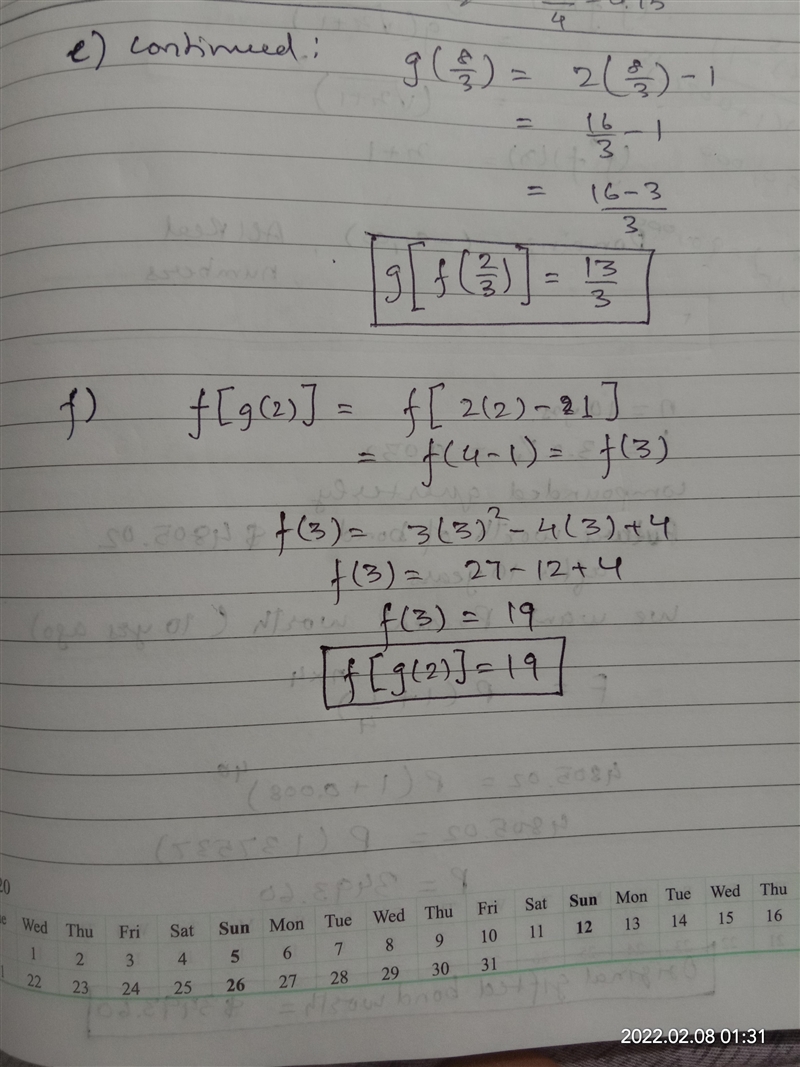 e) continued: g(8/3) = 2(8/3) - 1
= 16/3 - 1
= (16-3)/3
g[f(2/3)] = 13/3
f) f[g(2)] = f[2(2)-1]
= f(4-1) = f(3)
f(3) = 3(3)² - 4(3) + 4
f(3) = 27 - 12 + 4
f(3) = 19
f[g(2)] = 19
20
Wed Thu Fri Sat Sun Mon Tue Wed Thu Fri Sat Sun Mon Tue Wed Thu
1 2 3 4 5 6 7 8 9 10 11 12 13 14 15 16
22 23 24 25 26 27 28 29 30 31
2022.02.08 01:31